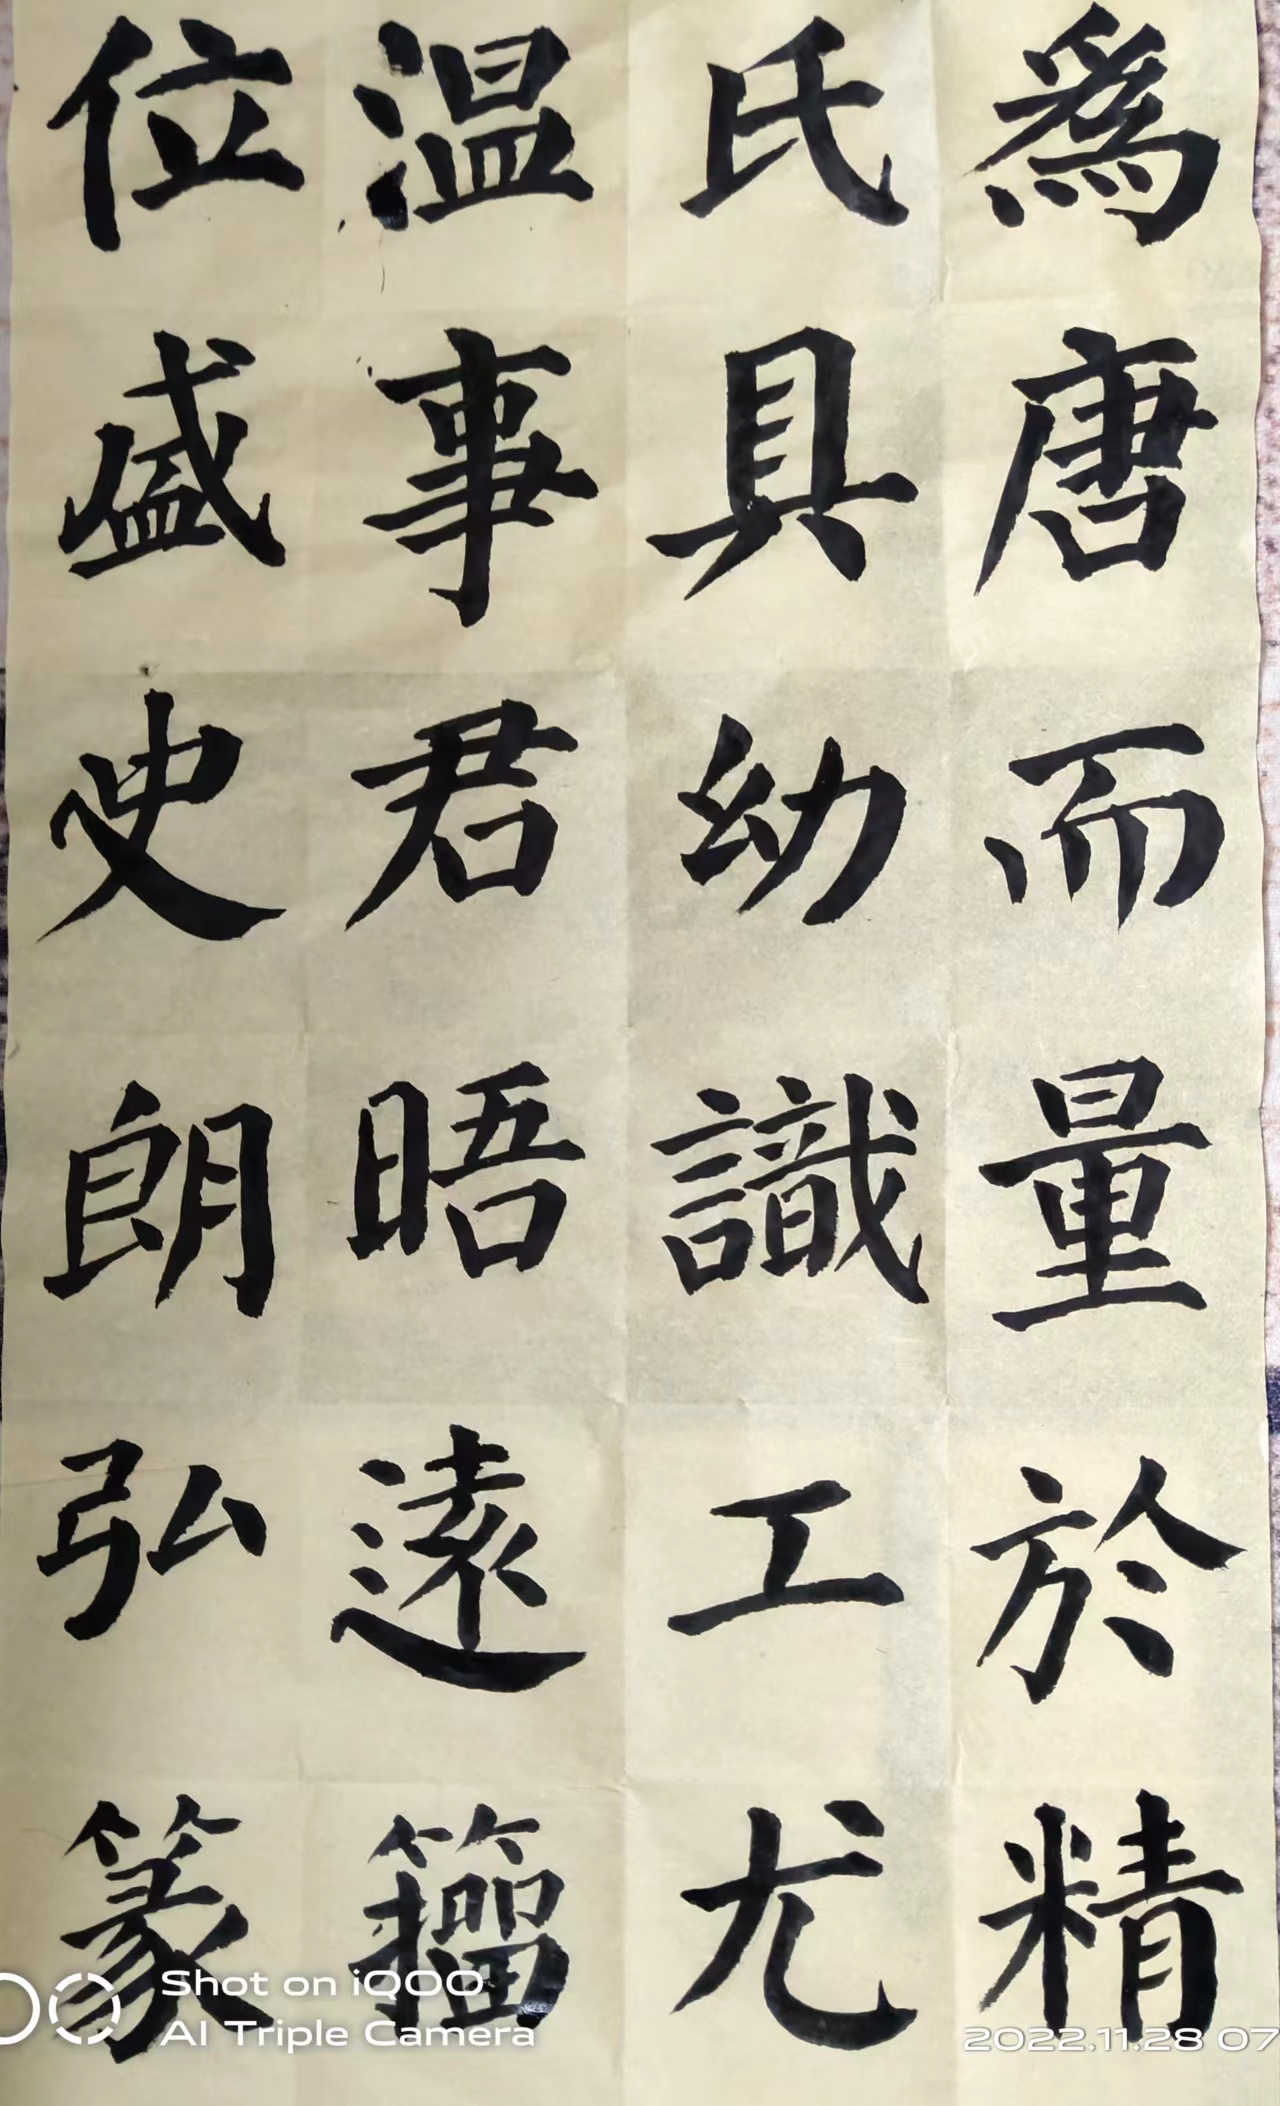 位温氏爲
盛事具唐
史君幼而
朗晤識量
弘遠工於
篆籀尤精
Shot on iQOO
AI Triple Camera
2022.11.28 07